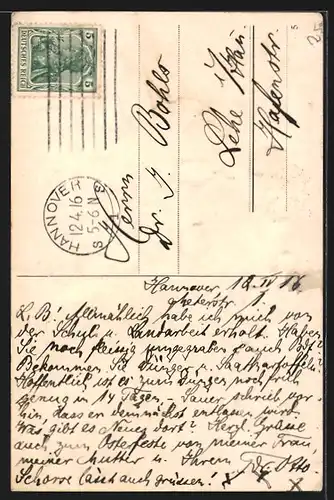 DEUTSCHES REICH
5 5
HANNOVER
12.4.16
5-6 N
S S
Herrn
Dr. J. Bohls
Lehe
Hafenstr.
Hannover, 12. IV 16.
L. B! Allmählich habe ich mich von
der Schul- u. Landarbeit erholt. Haben
Sie noch fleissig umgegraben auch
Bekommen Sie Dünger u. Saatkartoffeln?
Hoffentlich ist es zum Düngen noch früh
genug in 14 Tagen. Sauer schrieb vor-
hin, dass er demnächst entlassen wird.
Was gibt es Neues dort? Herzl. Grüsse
auch zum Osterfeste von meiner Frau,
meiner Mutter u. Ihrem Otto.
lässt auch grüssen!